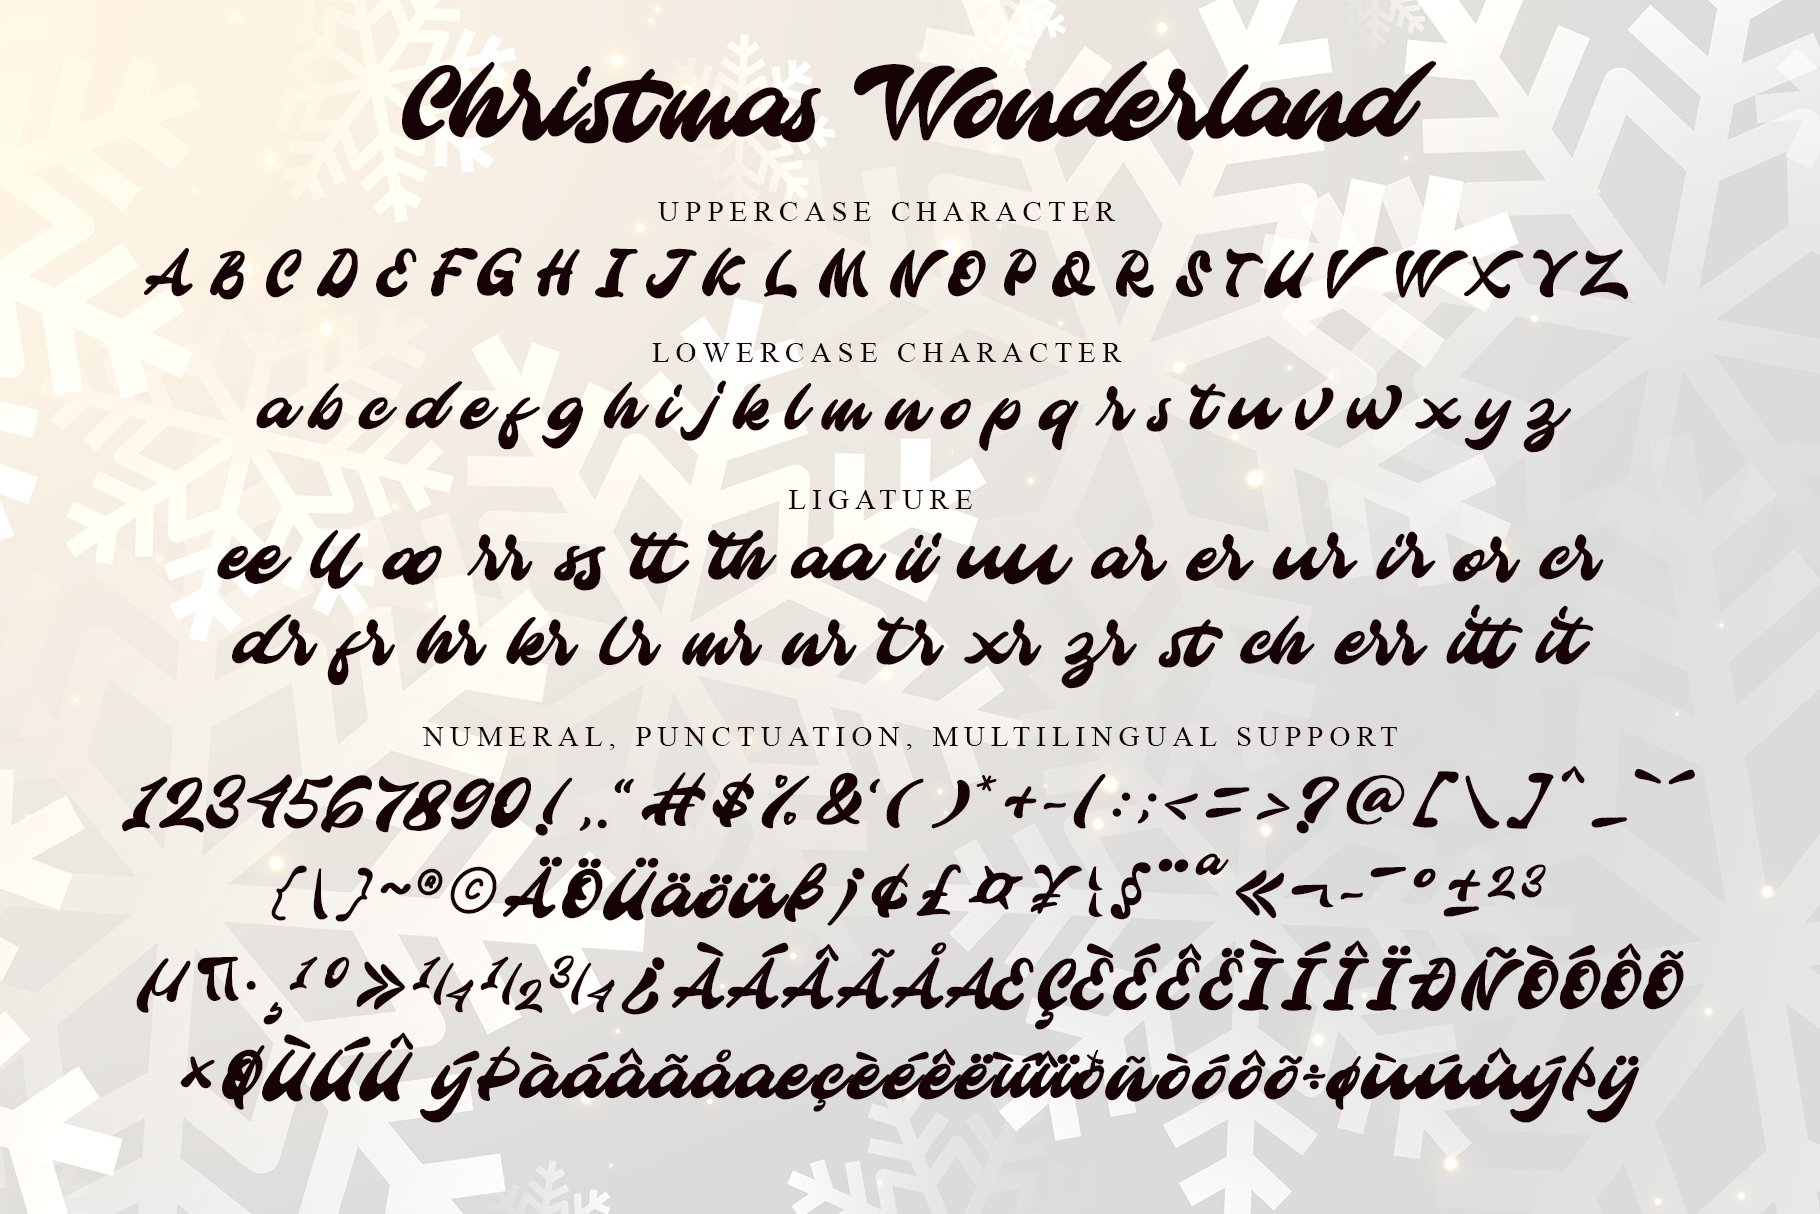 Christmas Wonderland
UPPERCASE CHARACTER
A B C D E F G H I J K L M N O P Q R S T U V W X Y Z
LOWERCASE CHARACTER
a b c d e f g h i j k l m n o p q r s t u v w x y z
LIGATURE
ee ll oo rr ss tt th aa ii uu ar er ur ir or cr
dr fr hr kr lr mr nr tr xr zr st ch err itt it
NUMERAL, PUNCTUATION, MULTILINGUAL SUPPORT
1234567890!,.“#$%&‘()*+-/:;<=>?@[\]^_`´
{|}~®©ÄÖÜäöüß¡¢£¤¥¦§¨ª«¬-¯°±²³
µ¶·¸¹º»¼½¾¿ÀÁÂÃÅÆÇÈÉÊËÌÍÎÏÐÑÒÓÔÕ
×ØÙÚÛ ýÞàáâãåæçèéêëìíîïðñòóôõ÷øùúûýþÿ